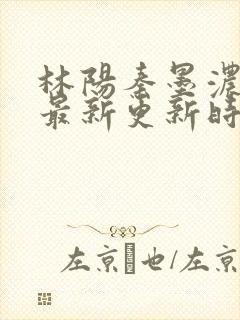 林陽秦墨濃
最新更新時
左京 也/左京